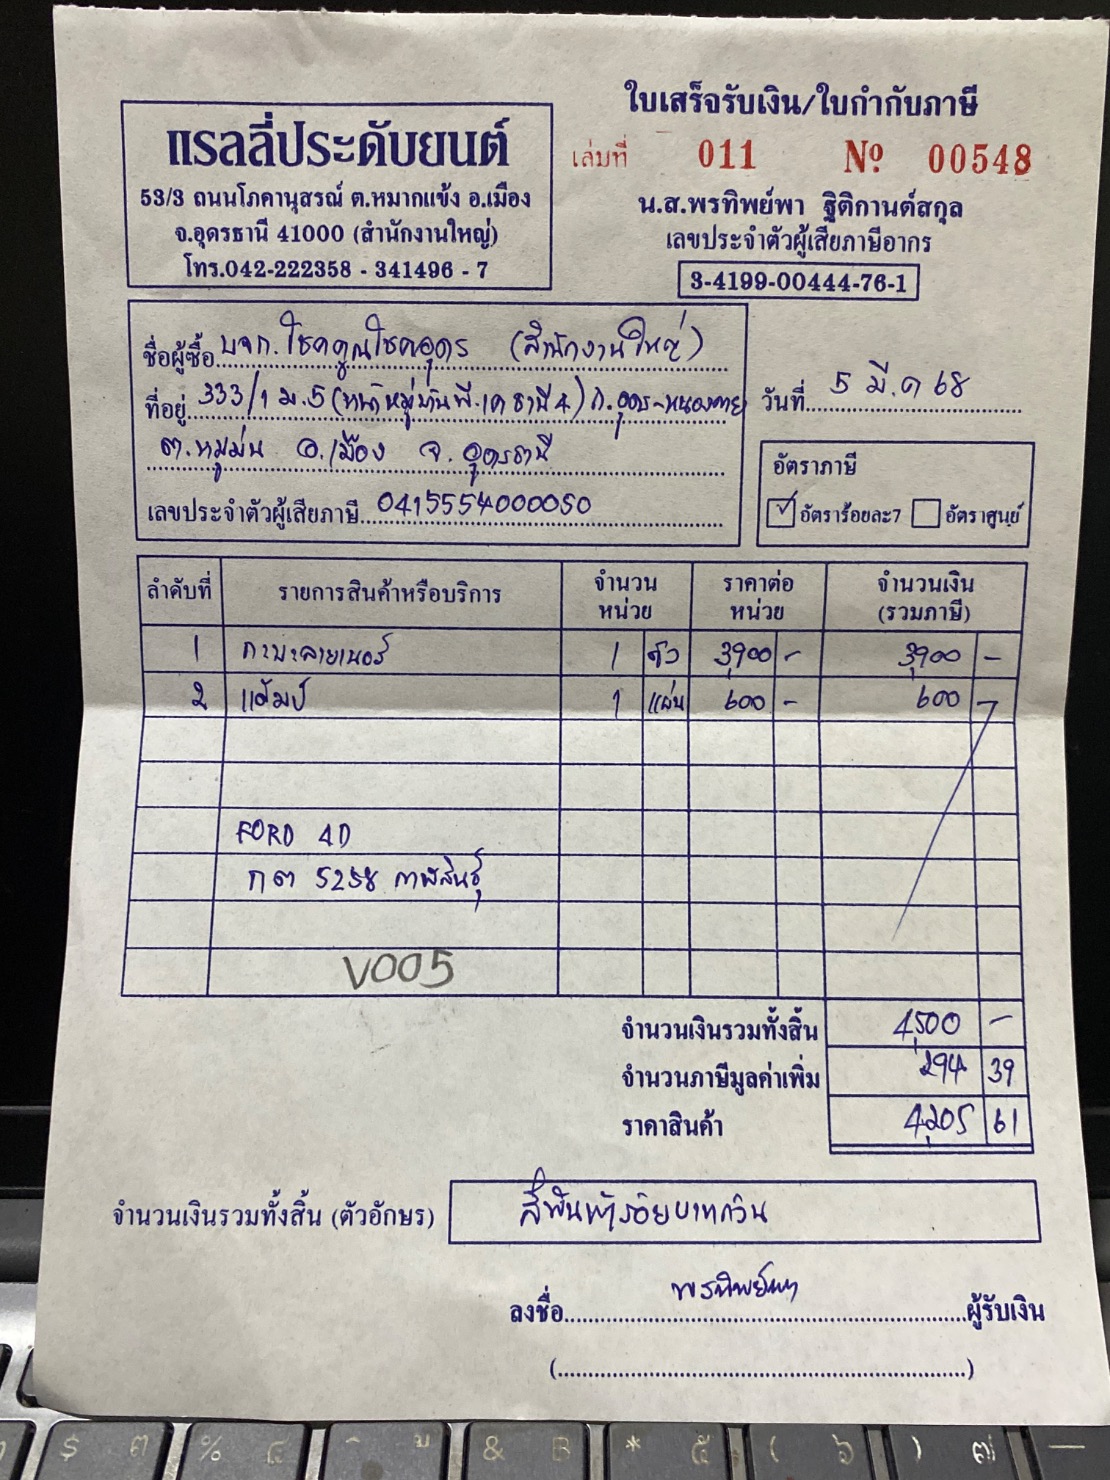 ใบเสร็จรับเงิน/ใบกำกับภาษี
แรลลี่ประดับยนต์
เล่มที่ 011 Nº 00548
53/3 ถนนโภคานุสรณ์ ต.หมากแข้ง อ.เมือง
จ.อุดรธานี 41000 (สำนักงานใหญ่)
โทร.042-222358 - 341496 - 7
น.ส.พรทิพย์พา ฐิติกานต์สกุล
เลขประจำตัวผู้เสียภาษีอากร
3-4199-00444-76-1
ชื่อผู้ซื้อ บจก.โชคคูณโชคอุดร (สำนักงานใหญ่)
ที่อยู่ 333/1 ม.5 (หน้าหมู่บ้านพี.เค ธานี 4) ถ.อุดร-หนองคาย
ต.หมูม่น อ.เมือง จ.อุดรธานี
เลขประจำตัวผู้เสียภาษี 0415554000050
วันที่ 5 มี.ค 68
อัตราภาษี
✓ อัตราร้อยละ7 อัตราศูนย์
ลำดับที่ รายการสินค้าหรือบริการ จำนวนหน่วย ราคาต่อหน่วย จำนวนเงิน (รวมภาษี)
1 กะบะลายเนอร์ 1 ตัว 3,900 - 3,900 -
2 แค้มป์ 1 แผ่น 600 - 600 -
FORD 4D
กต 5258 กาฬสินธุ์
V005
จำนวนเงินรวมทั้งสิ้น 4,500 -
จำนวนภาษีมูลค่าเพิ่ม 294 39
ราคาสินค้า 4,205 61
จำนวนเงินรวมทั้งสิ้น (ตัวอักษร) สี่พันห้าร้อยบาทถ้วน
ลงชื่อ พรทิพย์พา ผู้รับเงิน
(                    )
$ ๓ % ๔ ู & * ๕ ( ๖ ) ๗